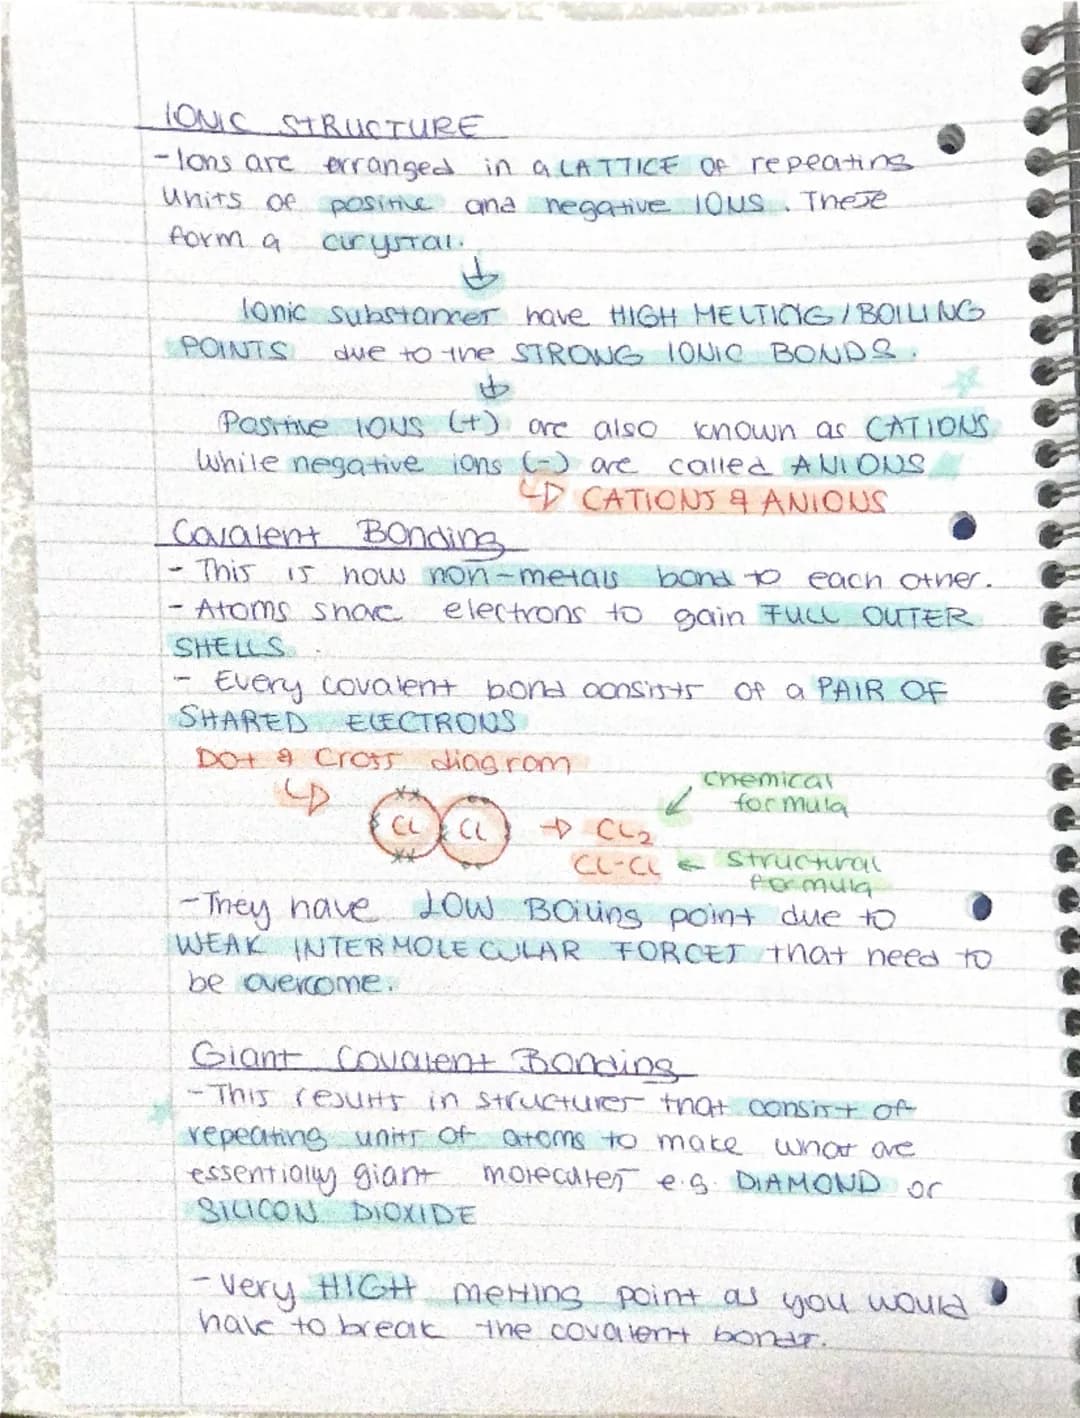 IONIC STRUCTURE
- Ions are arranged in a LATTICE OF repeating
Units of positive and negative IONS. These
form a crystal.
Ionic substances have HIGH MELTING/BOILING
POINTS due to the STRONG IONIC BONDS.
Positive IONS (+) are also known as CATIONS
While negative ions (-) are called ANIONS
CATIONS & ANIONS
Covalent Bonding
- This is how non-metals bond to each other.
- Atoms share electrons to gain FULL OUTER
SHELLS.
- Every covalent bond consists of a PAIR OF
SHARED ELECTRONS
Dot & Cross diagram
Chemical
formula
CL CL → CL2
CL-CL ← Structural
formula
- They have LOW Boiling point due to
WEAK INTERMOLECULAR FORCES that need to
be overcome.
Giant Covalent Bonding
- This results in structures that consist of
repeating units of atoms to make what are
essentially giant molecules e.g. DIAMOND or
SILICON DIOXIDE
- Very HIGH melting point as you would
have to break the covalent bonds.